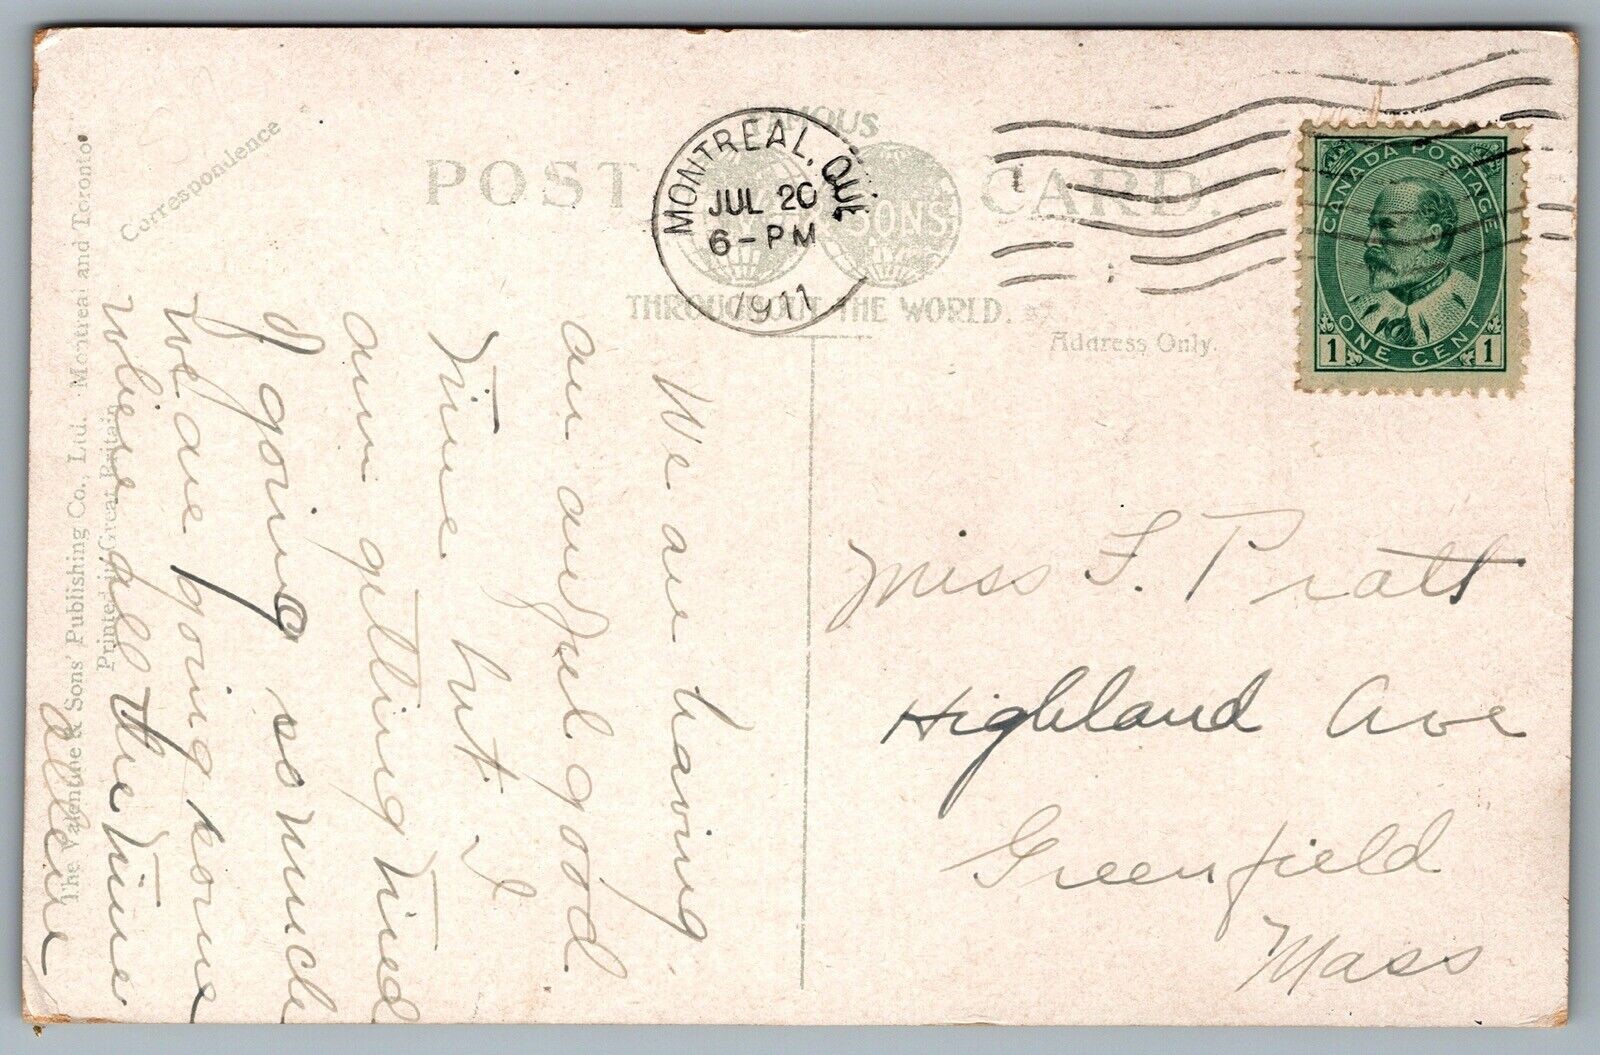 FAMOUS
POST CARD.
SONS
THROUGHOUT THE WORLD.
MONTREAL, QUE
JUL 20
6-PM
1911
CANADA POSTAGE
ONE CENT
1 1
Correspondence
Address Only.
The Valentine & Sons' Publishing Co., Ltd. Montreal and Toronto
Printed in Great Britain
We are having
an awful good
time but I
am getting tired
of going so much
We are going some
where all the time
Miss F. Pratt
Highland Ave
Greenfield
Mass